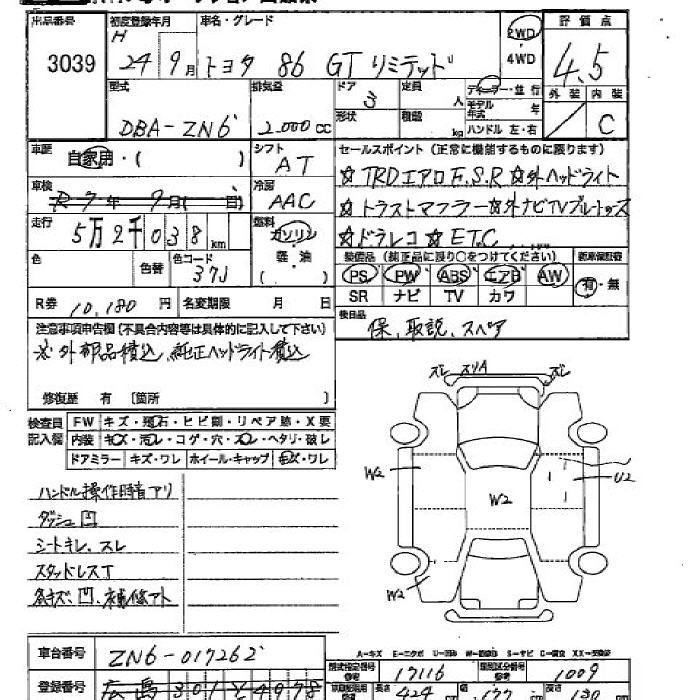 出品番号
3039
初度登録年月
H
24 9月
車名・グレード
トヨタ 86 GT リミテッド
2WD
4WD
評価点
4.5
外装 内装
C
型式
DBA-ZN6
排気量
2.000cc
ドア
3
形状
定員
人
積載
kg
ディーラー・並行
モデル年式 年
ハンドル 左・右
車歴
自家用・( )
シフト
AT
車検
R7年 9月( 日)
冷房
AAC
走行
5万2千038km
燃料
ガソリン
軽・油
( )
色
色替
色コード
37J
R券 10,180円
名変期限 月 日
セールスポイント(正常に機能するものに限ります)
☆TRDエアロF.S.R ☆外ヘッドライト
☆トラストマフラー☆外ナビTVブルートゥース
☆ドラレコ ☆ETC
装備品(純正品に限り○をつけてください)
新車保証書
PS PW ABS エアB AW
SR ナビ TV カワ
有・無
後日品
保、取説、スペア
注意事項申告欄(不具合内容等は具体的に記入して下さい)
※外部品積込、純正ヘッドライト積込
修復歴 有 〔箇所 〕
検査員記入欄
FW キズ・飛石・ヒビ割・リペア跡・X要
内装 キズ・汚レ・コゲ・穴・スレ・ヘタリ・破レ
ドアミラー キズ・ワレ ホイール・キャップ キズ・ワレ
ハンドル操作時音アリ
ダッシュ凹
シートキレ、スレ
スタッドレスT
各キズ、凹、補修アト
ズレ スリA ズレ
W2
W2
U2
W2
車台番号
ZN6-017262
登録番号
広島 301 そ 4978
A-キズ E-エクボ U-凹み W-補修跡 S-サビ C-腐食 XX-交換済
型式指定番号
参考
17116
類別区分番号
参考
1009
長さ
424
幅
177
高さ
130